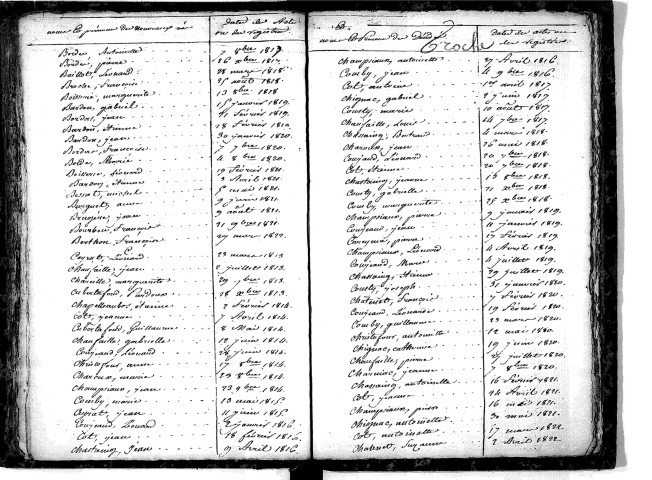 nom et prénom du nouveau né
Date de l'acte ou des registres
Bordes Antoinette 7 8bre 1817
Borde, pierre 26 9bre 1817
Baillot, Leonard 28 mars 1818
Brette, françoise 25 août 1818
Boisserie, marguerite 13 8bre 1818
Bardon, gabriel 15 janvier 1819
Bordes, jean 21 février 1819
Bardon, Etienne 28 février 1819
Bardon, jean 30 janvier 1820
Bordas, françoise 7 7bre 1820
Bordes, Marie 4 8bre 1820
Boisserie, Léonard 19 février 1821
Bardon, Etienne 3 Avril 1821
Bessat, michel 5 mai 1821
Burguet, anne 9 juin 1821
Brugère, jean 9 août 1821
Bourbon, François 21 9bre 1821
Berthon, Françoise 27 mars 1822
Ceyrat, Léonard 23 mars 1813
Chaufaille, jean 2 juillet 1813
Chareille, marguerite 29 7bre 1813
Cubertafond, Pardoux 28 xbre 1813
Chapelleaubot, étienne 2 février 1814
Cot, jeanne 7 Avril 1814
Cubertafond, Guillaume 8 Mai 1814
Chaufaille, gabrielle 12 juin 1814
Coujeand, Léonard 28 juin 1814
Christofour, anne 17 8bre 1814
Charbon, marie 29 8bre 1814
Champsiaux, jean 23 9bre 1814
Comby, marie 13 mai 1815
Ceyrat, jean 11 juin 1815
Coujeand, Léonard 2 janvier 1816
Cot, jean 18 février 1816
Chastaing, Jean 9 Avril 1816
Troche
Date des actes ou des registres
Champsiaux, antoinette 27 Avril 1816
Comby, jean 4 9bre 1816
Cot, antoine 1er avril 1817
Chignac, gabriel 2 juin 1817
Cousty, marie 10 août 1817
Chaufaille, Louis 14 7bre 1817
Chassaing, Bertrand 4 mars 1818
Charolin, jean 26 mai 1818
Coujeand, Léonard 20 7bre 1818
Cot, Etienne 26 7bre 1818
Chastaing, jeanne 18 8bre 1818
Cousty, gabrielle 21 xbre 1818
Comby, marguerite 25 xbre 1818
Champsiaux, pierre 9 janvier 1819
Coujeand, jean 11 janvier 1819
Couegnas, pierre 17 février 1819
Champsiaux, Léonard 4 Avril 1819
Coujeand, Marie 4 juillet 1819
Chassaing, Etienne 29 juillet 1819
Cousty, joseph 31 janvier 1820
Chatenet, François 7 février 1820
Coujeand, Léonarde 19 février 1820
Comby, guillaume 23 mars 1820
Christofour, antoinette 12 mai 1820
Chignac, catherine 19 juin 1820
Chaufaille, pierre 24 juillet 1820
Chassaing, jeanne 7 8bre 1820
Chassaing, antoinette 16 février 1821
Cot, jeanne 24 Avril 1821
Champsiaux, pierre 16 mai 1821
Chignac, antoinette 30 mai 1821
Cot, antoinette 17 mars 1822
Chatenet, Suzanne 2 Avril 1822